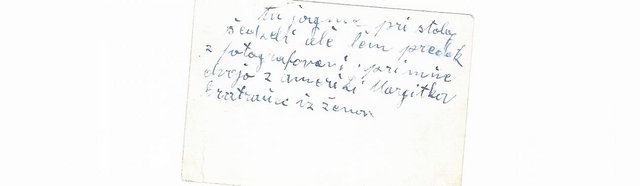 Tu jogme pri stole
šedzeli ale lem predek
z fotografovani. pri mne
dvojo z ameriki Margitkov
bratranec iz ženov